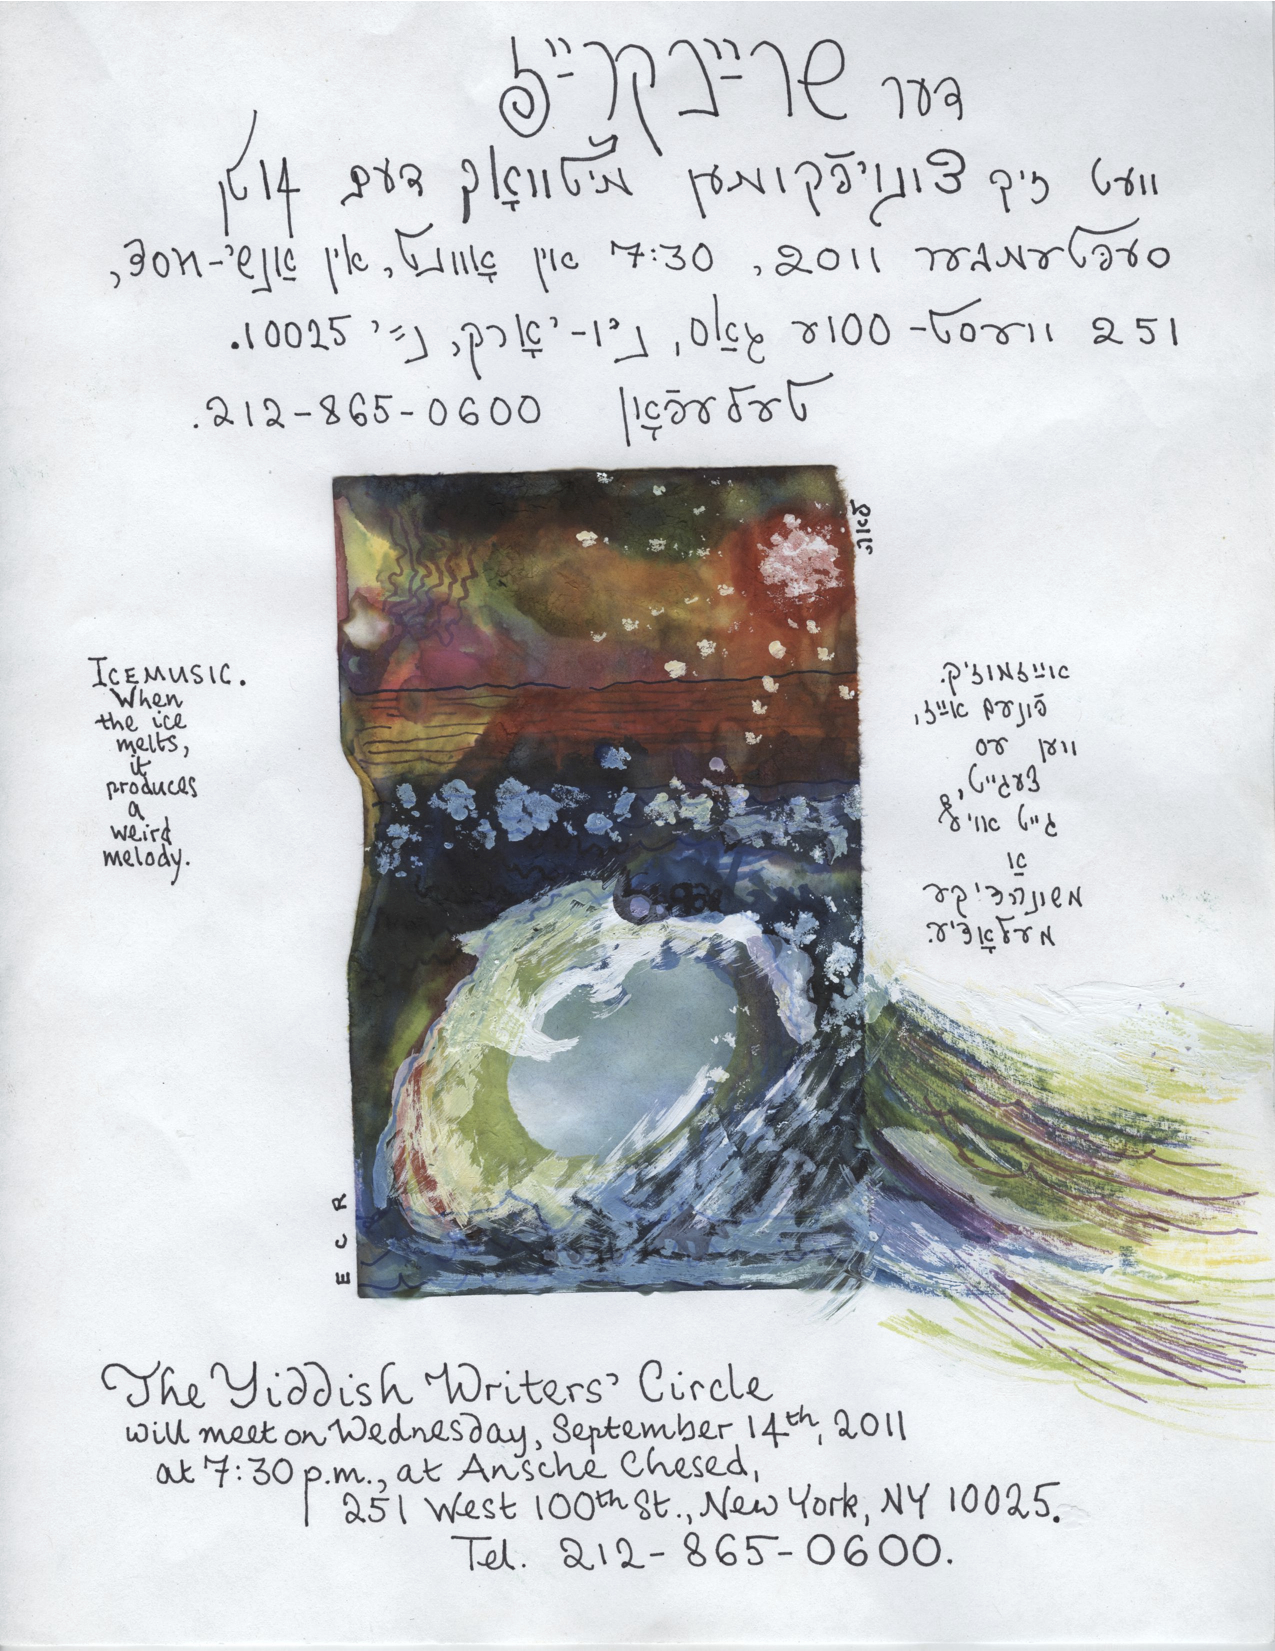 דער שרײַבקרײַז
וועט זיך צונויפֿקומען מיטוואָך דעם 14טן
סעפּטעמבער 2011, 7:30 אין אָוונט, אין אַנשי-חסד,
251 וועסט-100ער גאַס, ניו-יאָרק, נ״י 10025.
טעלעפֿאָן 212-865-0600.
לאה
ICEMUSIC.
When
the ice
melts,
it
produces
a
weird
melody.
אײַזמוזיק.
פֿונעם אײַז,
ווען עס
צעגייט,
גייט אויף
אַ
משונהדיקע
מעלאָדיע.
ECR
The Yiddish Writers' Circle
will meet on Wednesday, September 14th, 2011
at 7:30 p.m., at Ansche Chesed,
251 West 100th St., New York, NY 10025.
Tel. 212-865-0600.